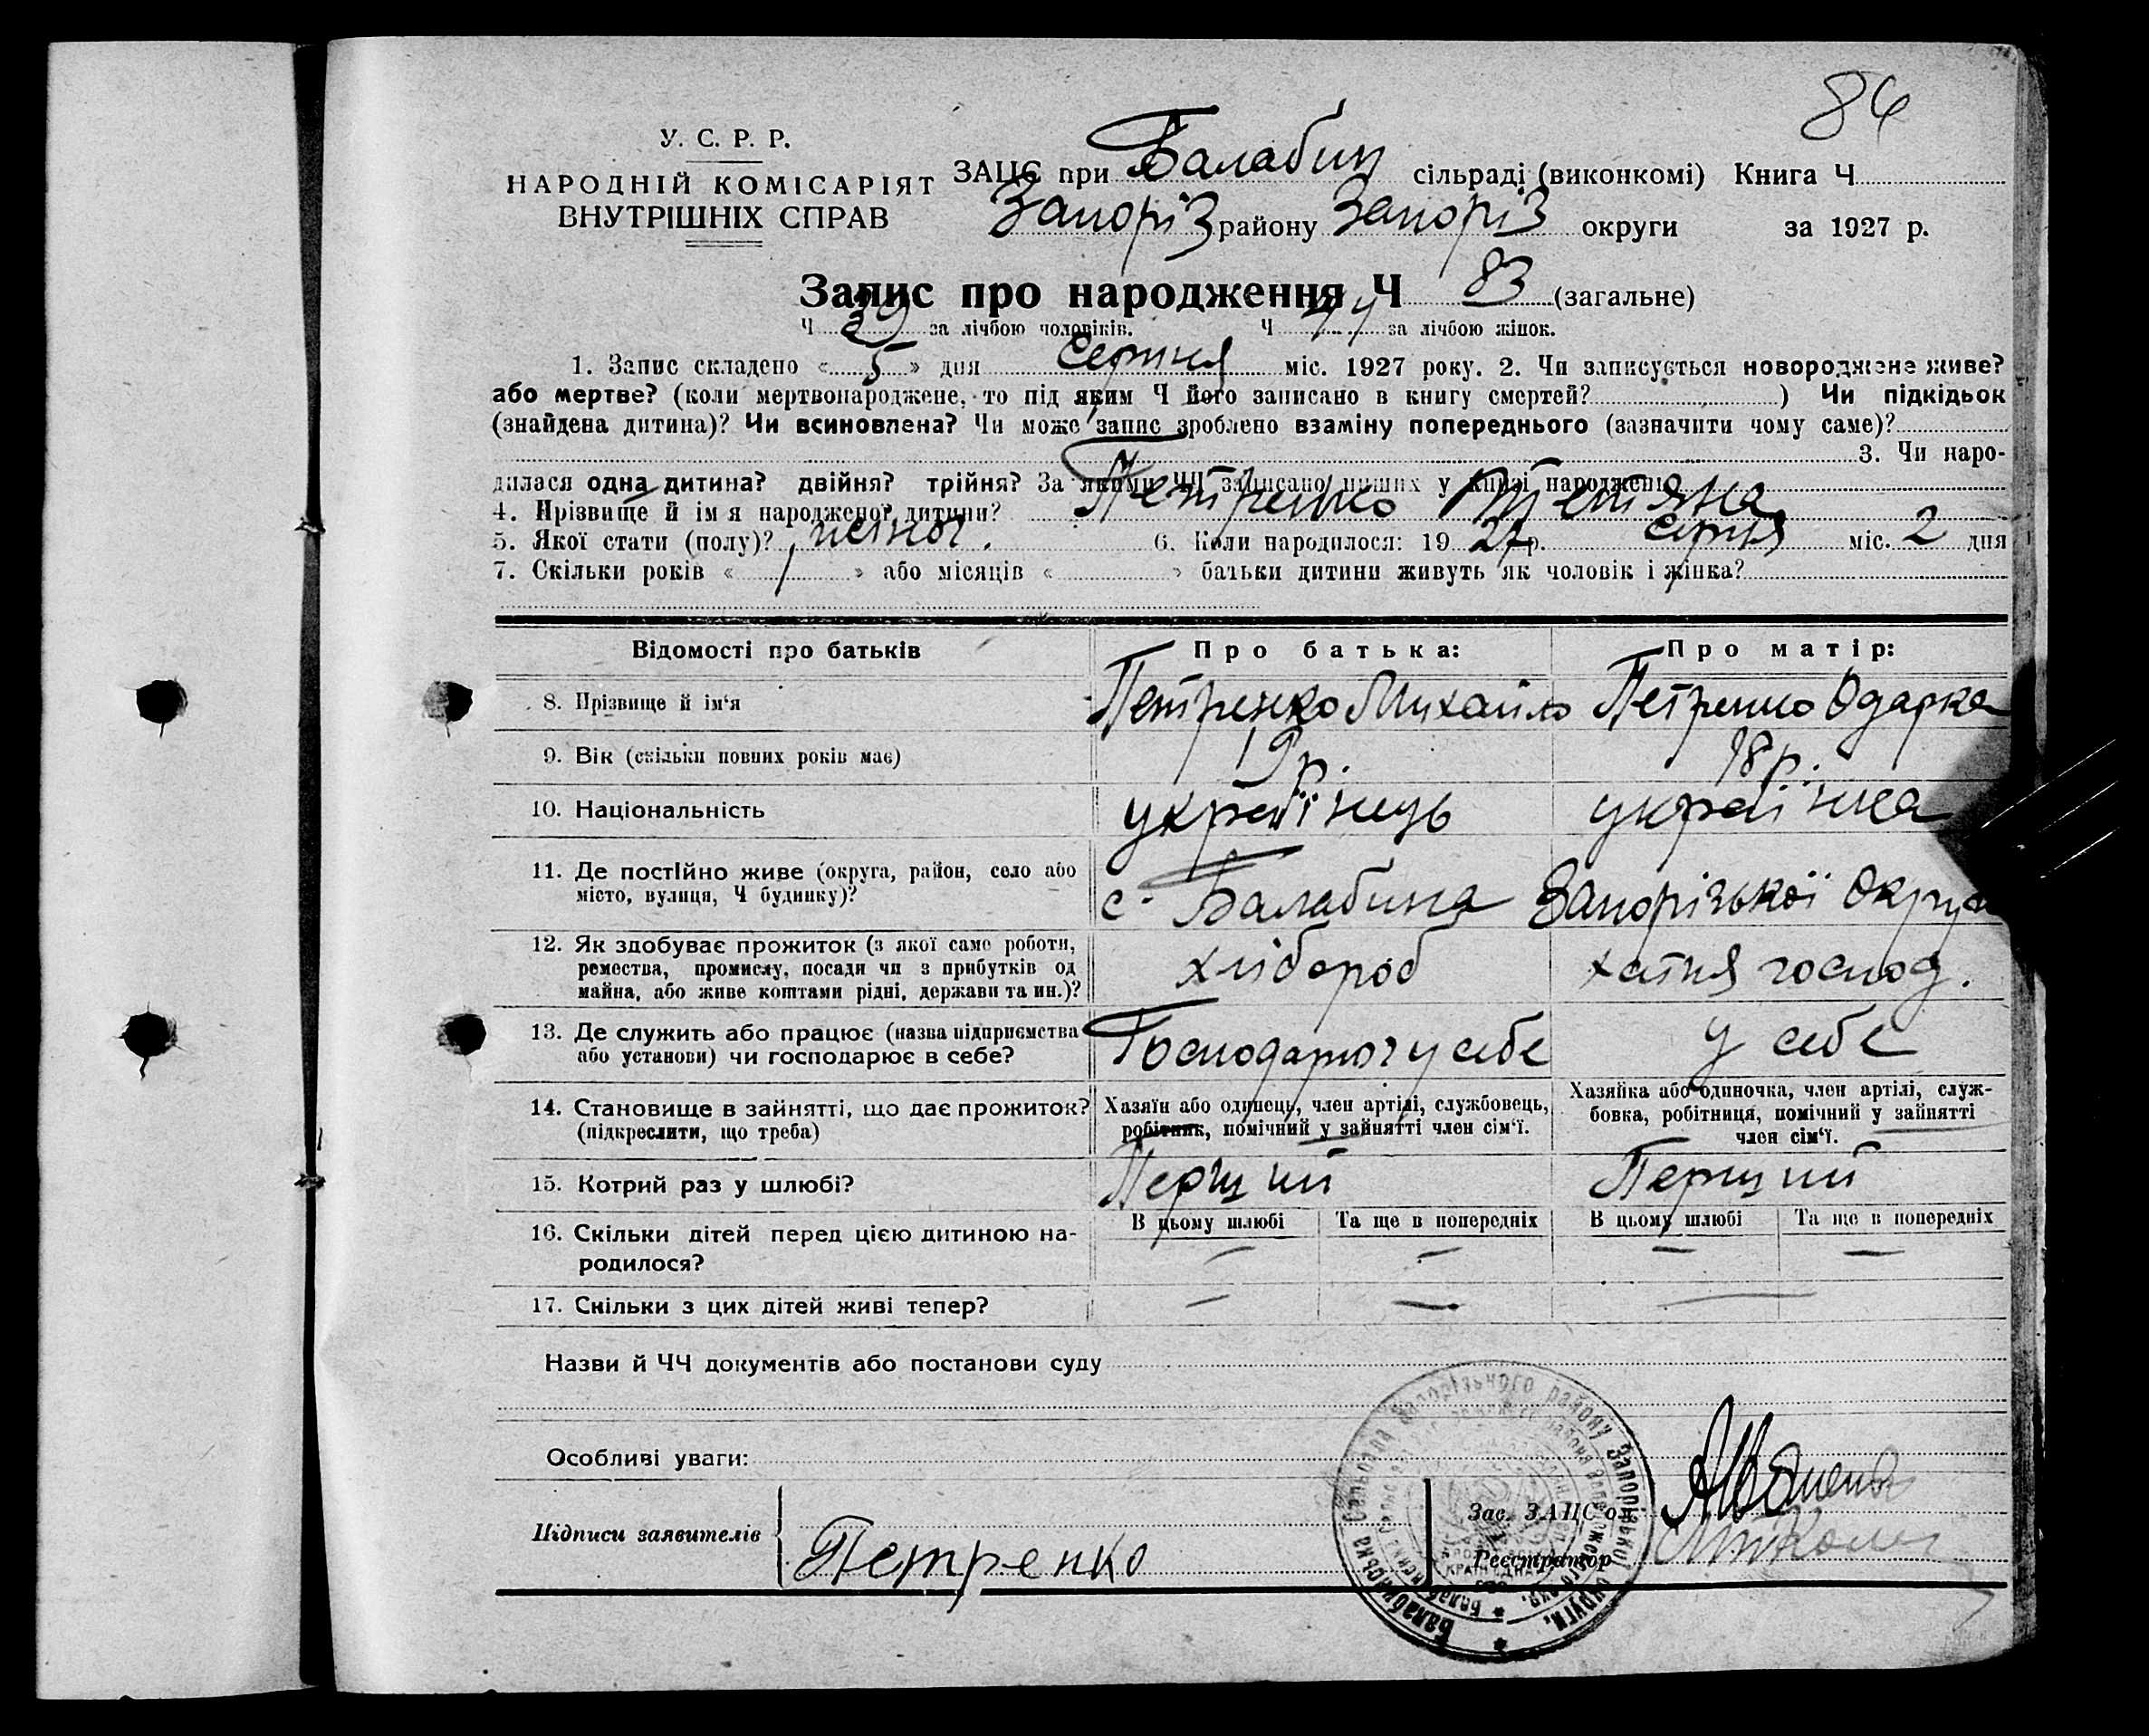 86
У. С. Р. Р.
НАРОДНІЙ КОМІСАРІЯТ
ВНУТРІШНІХ СПРАВ
ЗАЦС при Балабин сільраді (виконкомі) Книга Ч
Запоріз району Запоріз округи за 1927 р.
Запис про народження Ч 83 (загальне)
Ч 39 за лічбою чоловіків. Ч 44 за лічбою жінок.
1. Запис складено « 5 » дня серпня міс. 1927 року. 2. Чи записується новороджене живе?
або мертве? (коли мертвонароджене, то під яким Ч його записано в книгу смертей? ) Чи підкідьок
(знайдена дитина)? Чи всиновлена? Чи може запис зроблено взаміну попереднього (зазначити чому саме)?
3. Чи наро-
дилася одна дитина? двійня? трійня? За якими ЧЧ записано инших у книзі народжень
4. Прізвище й ім я народженої дитини? Петренко Тетяна
5. Якої стати (полу)? жіноч. 6. Коли народилося: 19 27 р. серпня міс. 2 дня
7. Скільки років « » або місяців « » батьки дитини живуть як чоловік і жінка?
Відомості про батьків Про батька: Про матір:
8. Прізвище й ім'я Петренко Михайло Петренко Одарка
9. Вік (скільки повних років має) 19 р. 18 р.
10. Національність українець українка
11. Де постійно живе (округа, район, село або
місто, вулиця, Ч будинку)? с. Балабина Запорізької Округи
12. Як здобуває прожиток (з якої саме роботи,
ремества, промислу, посади чи з прибутків од
майна, або живе коштами рідні, держави та ин.)? хлібороб хатня господ.
13. Де служить або працює (назва підприємства
або установи) чи господарює в себе? Господарює у себе у себе
14. Становище в зайнятті, що дає прожиток?
(підкреслити, що треба)
Хазяїн або одинець, член артілі, службовець,
робітник, помічний у зайнятті член сім'ї.
Хазяйка або одиночка, член артілі, служ-
бовка, робітниця, помічний у зайнятті
член сім'ї.
15. Котрий раз у шлюбі? Перший Перший
16. Скільки дітей перед цією дитиною на-
родилося?
В цьому шлюбі Та ще в попередніх В цьому шлюбі Та ще в попередніх
— — — —
17. Скільки з цих дітей живі тепер? — — —
Назви й ЧЧ документів або постанови суду
Особливі уваги:
Підписи заявителів Петренко
Зав. ЗАЦС'ом
Реєстратор
Балабинська Сільрада Запорізького району Запорізької округи.